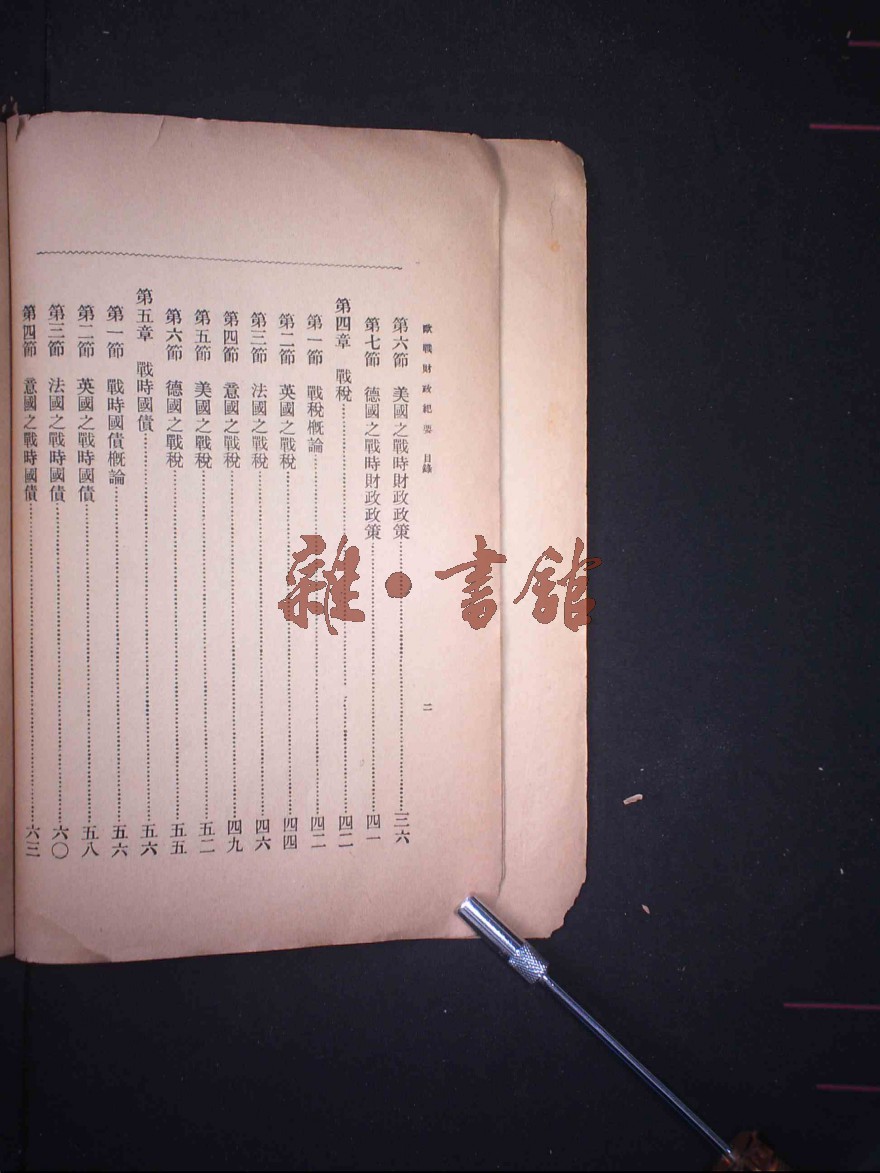 歐戰財政紀要 目錄 二
第六節 美國之戰時財政政策 三六
第七節 德國之戰時財政政策 四一
第四章 戰稅 四二
第一節 戰稅槪論 四二
第二節 英國之戰稅 四四
第三節 法國之戰稅 四六
第四節 意國之戰稅 四九
第五節 美國之戰稅 五二
第六節 德國之戰稅 五五
第五章 戰時國債 五六
第一節 戰時國債槪論 五六
第二節 英國之戰時國債 五八
第三節 法國之戰時國債 六〇
第四節 意國之戰時國債 六三
雜·書館